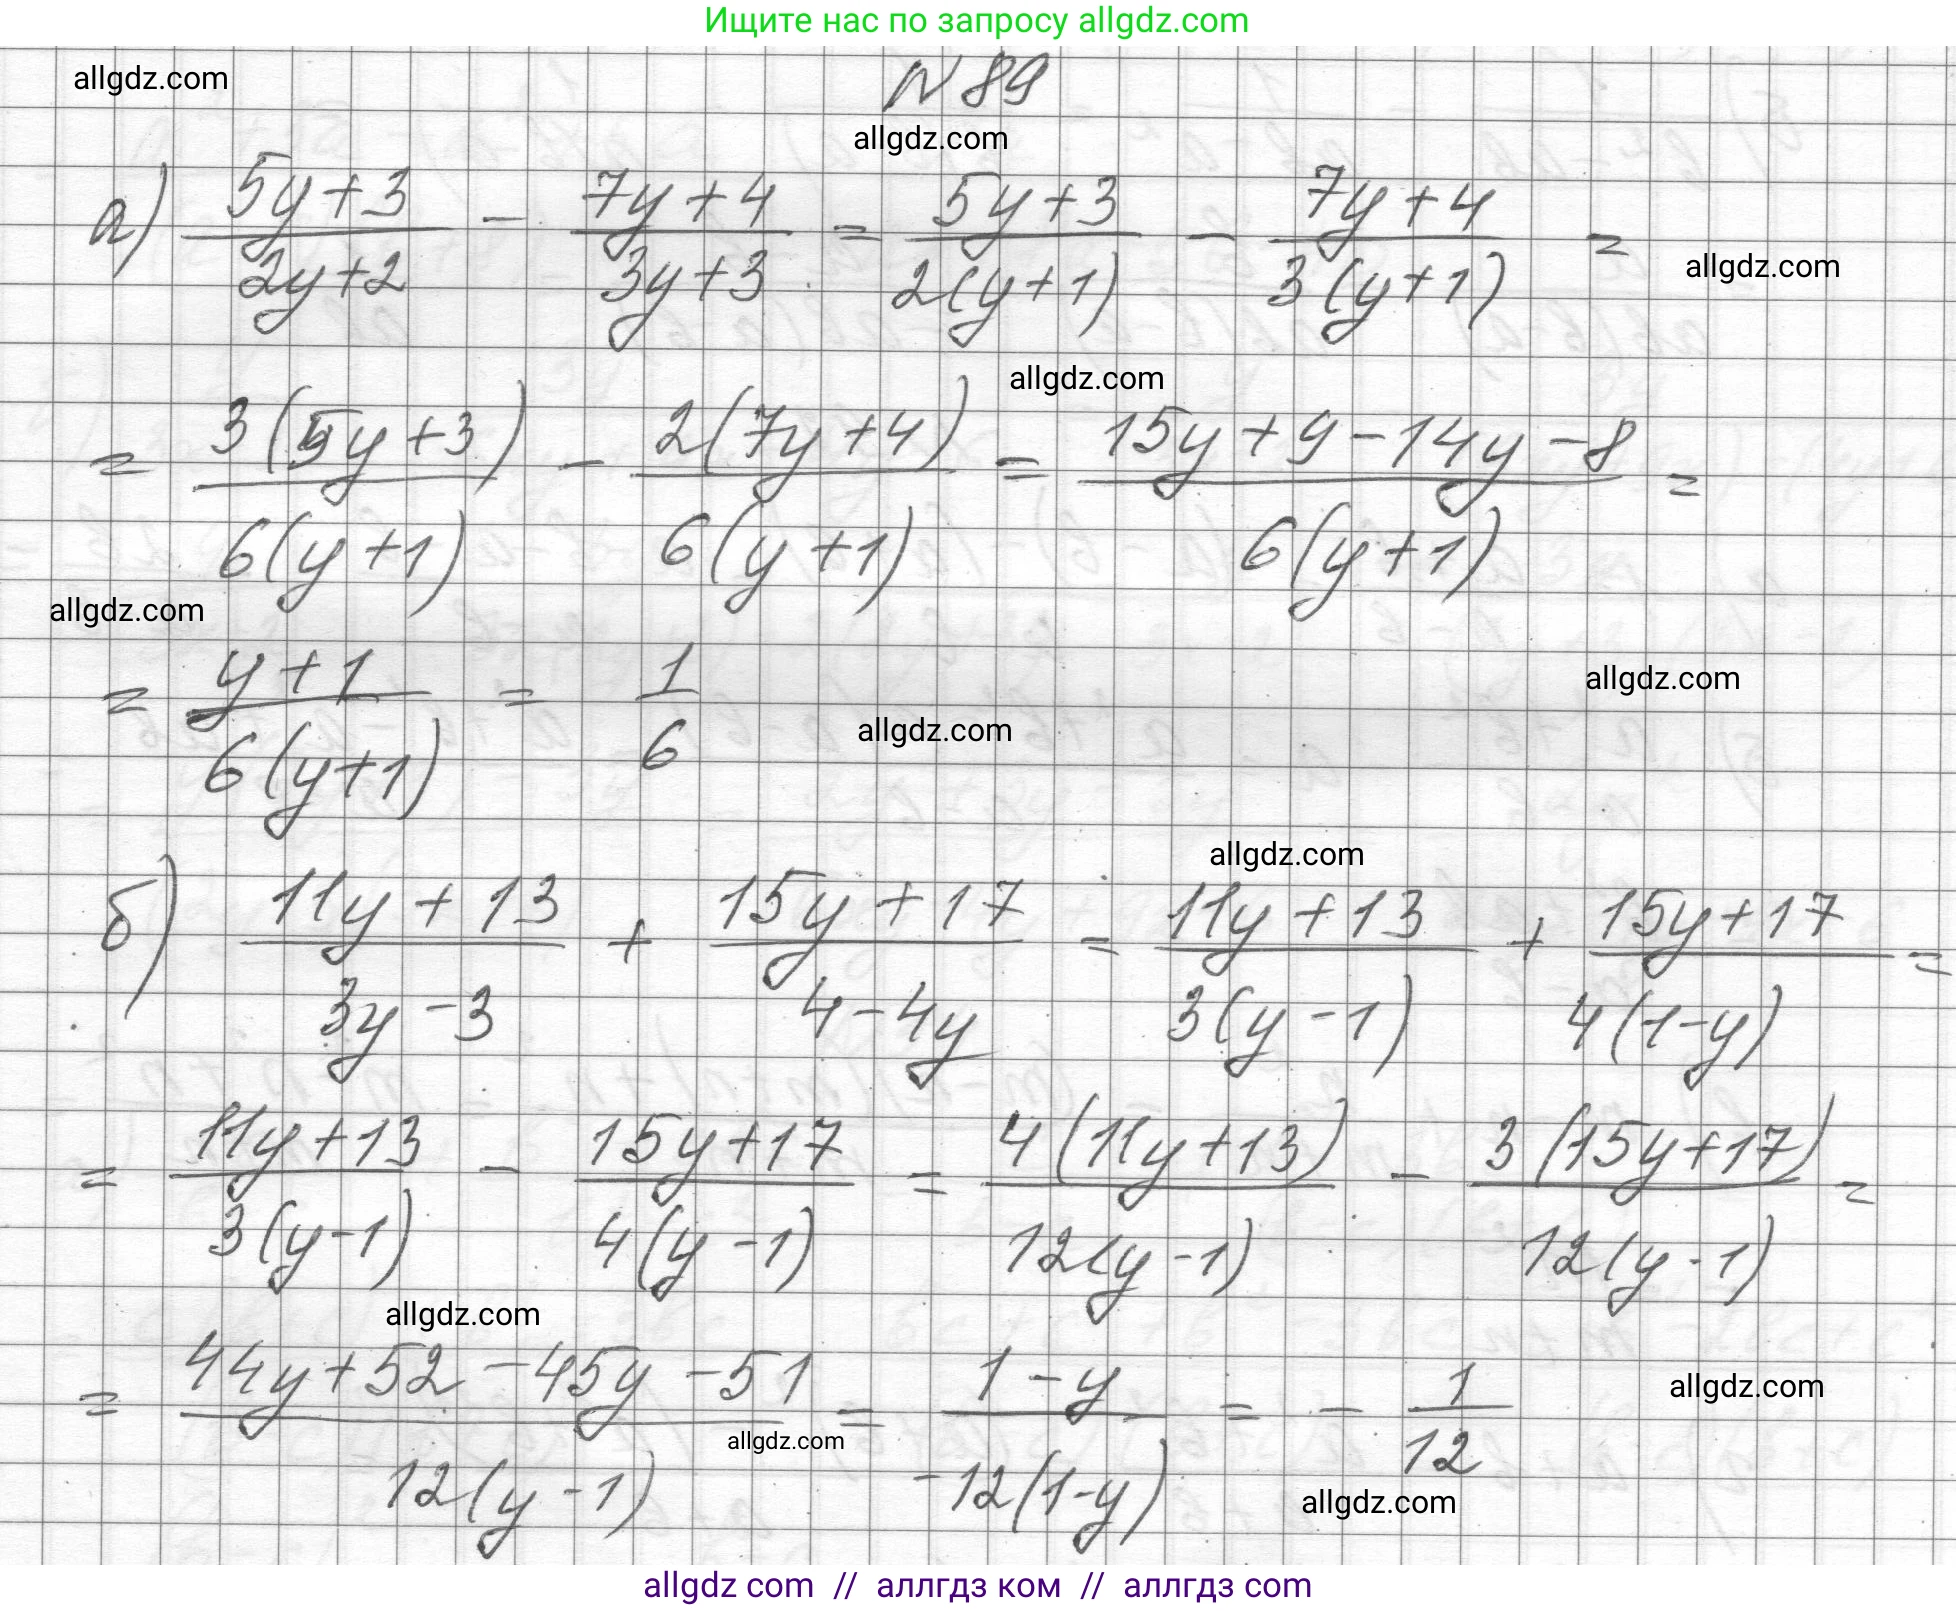 Ищите нас по запросу allgdz.com
N 89
allgdz.com
allgdz.com
а) (5y+3)/(2y+2) - (7y+4)/(3y+3) = (5y+3)/(2(y+1)) - (7y+4)/(3(y+1)) =
allgdz.com
allgdz.com
= (3(5y+3))/(6(y+1)) - (2(7y+4))/(6(y+1)) = (15y+9-14y-8)/(6(y+1)) =
allgdz.com
= (y+1)/(6(y+1)) = 1/6
allgdz.com
allgdz.com
allgdz.com
б) (11y+13)/(3y-3) + (15y+17)/(4-4y) = (11y+13)/(3(y-1)) + (15y+17)/(4(1-y)) =
= (11y+13)/(3(y-1)) - (15y+17)/(4(y-1)) = (4(11y+13))/(12(y-1)) - (3(15y+17))/(12(y-1)) =
allgdz.com
= (44y+52-45y-51)/(12(y-1)) = (1-y)/(-12(1-y)) = - 1/12
allgdz.com
allgdz.com
allgdz.com
allgdz com // аллгдз ком // аллгдз com